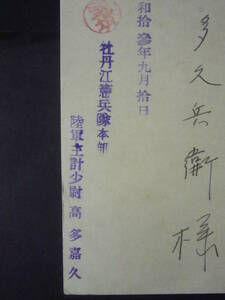 多久兵衛様
和拾参年九月拾日
牡丹江憲兵隊本部
陸軍主計少尉 高多嘉久